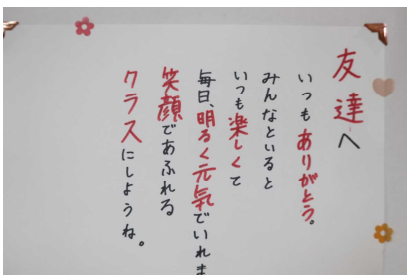 友達へ
いつもありがとう。
みんなといると
いつも楽しくて
毎日、明るく元気でいれま
笑顔であふれる
クラスにしようね。